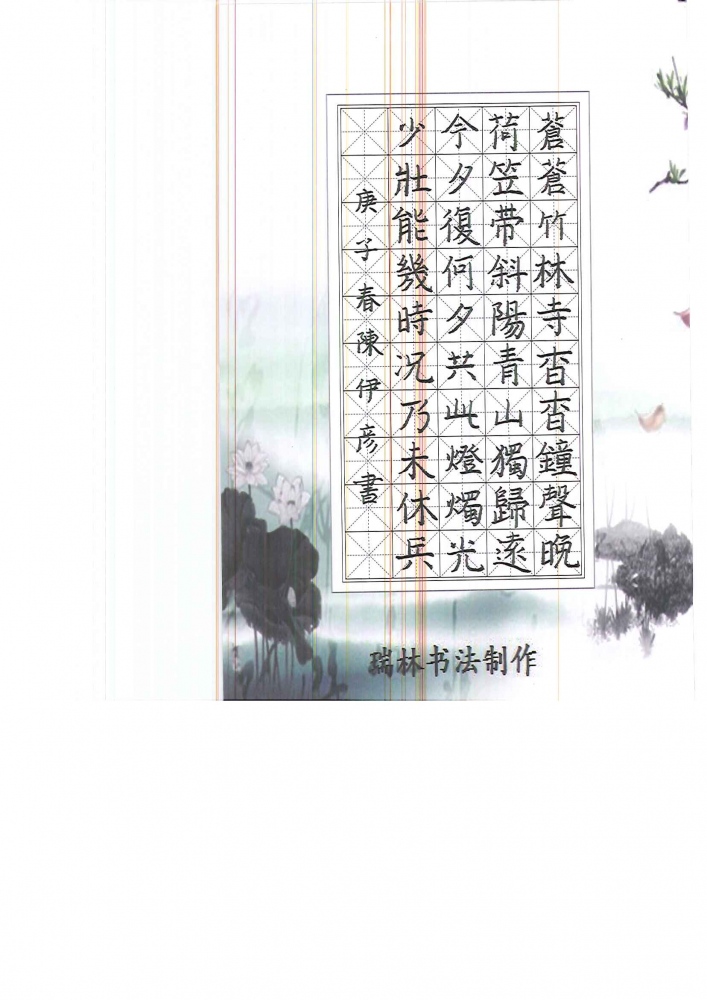 蒼蒼竹林寺杳杳鐘聲晚
荷笠带斜陽青山獨歸遠
今夕復何夕共此燈燭光
少壯能幾時况乃未休兵
庚子春陳伊彦書
瑞林书法制作